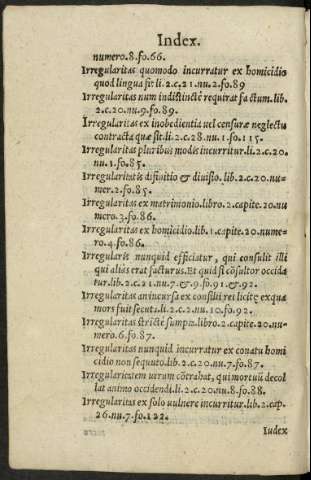 Index.
numero.8.fo.66.
Irregularitas quomodo incurratur ex homicidio
quod lingua fit.li.2.c.21.nu.2.fo.89
Irregularitas num indistinctè requirat factum.lib.
2.c.20.nu.9.fo.89.
Irregularitas ex inobedientia vel censuræ neglectu
contracta quæ sit.li.2.c.28.nu.1.fo.115.
Irregularitas pluribus modis incurritur.li.2.c.20.
nu.1.fo.85.
Irregularitatis difinitio & diuisio.lib.2.c.20.nu-
mer.2.fo.85.
Irregularitas ex matrimonio.libro.2.capite.20.nu
mero.3.fo.86.
Irregularitas ex homicidio.lib.1.capite.20.nume-
ro.4.fo.86.
Irregularis nunquid efficiatur, qui consulit illi
qui aliàs erat facturus.Et quid si cõsultor occida
tur.lib.2.c.21.nu.7.&.9.fo.91.&.92.
Irregularitas an incursa ex consilij rei licitę ex qua
mors fuit secuta.li.2.c.21.nu.10.fo.92.
Irregularitas strictè sumpta.libro.2.capite.20.nu-
mero.6.fo.87.
Irregularitas nunquid incurratur ex conatu homi
cidio non sequuto.lib.2.c.20.nu.7.fo.87.
Irregularitatem utrum cõtrahat, qui mortuũ decol
lat animo occidendi.li.2.c.20.nu.8.fo.88.
Irregularitas ex solo vulnere incurritur.lib.2.cap.
26.nu.7.fo.122.
Iudex